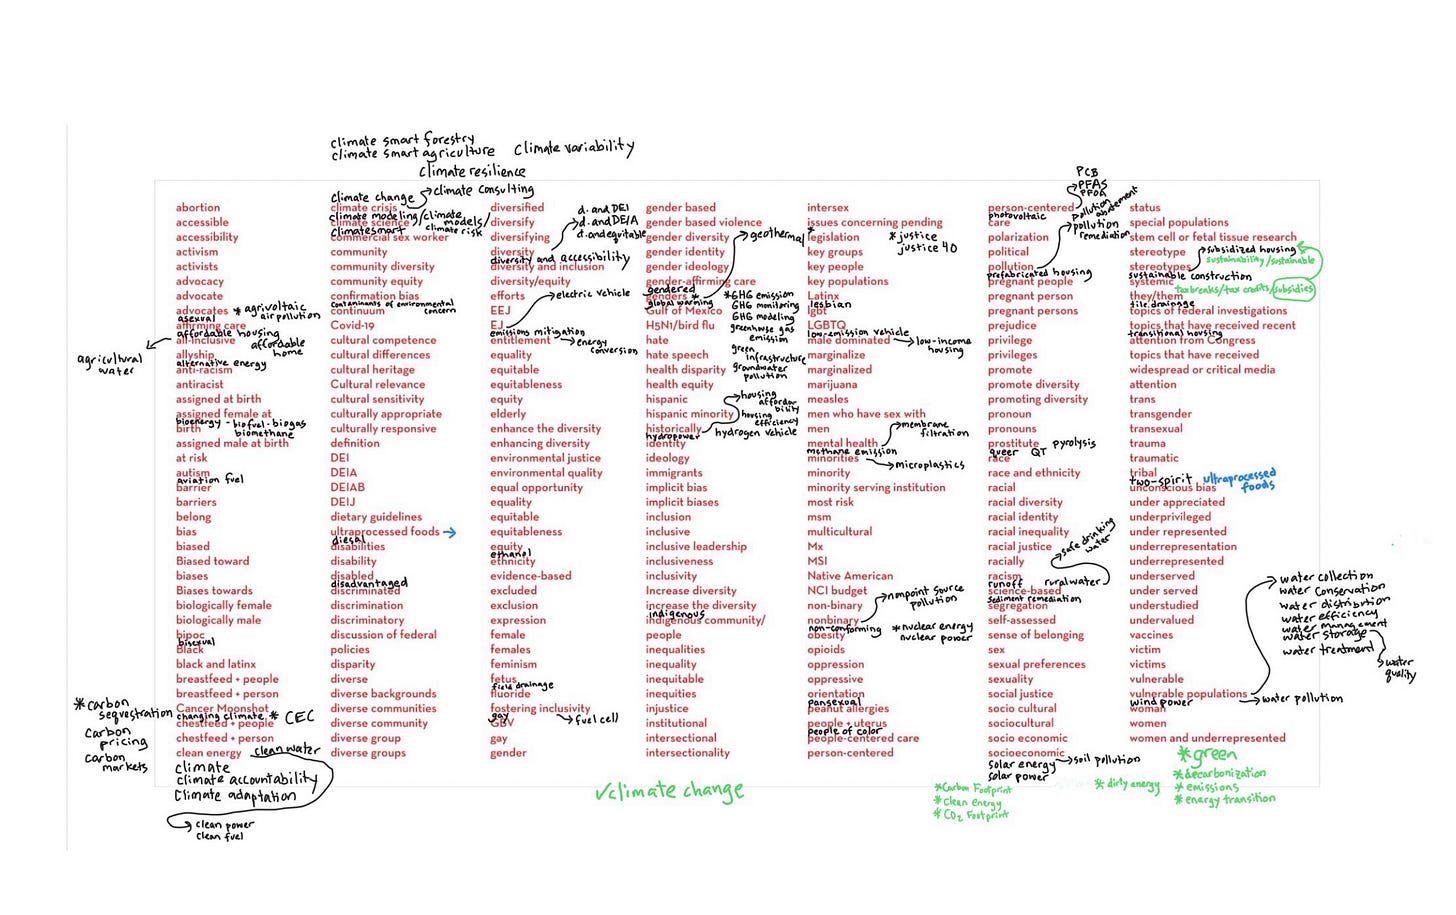 climate smart forestry
climate smart agriculture
climate variability
climate resilience
abortion
accessible
accessibility
activism
activists
advocacy
advocate
advocates
* agrivoltaic
air pollution
asexual
affirming care
affordable housing
affordable
home
all-inclusive
agricultural
water
allyship
alternative energy
anti-racism
antiracist
assigned at birth
assigned female at
birth
bioenergy - biofuel - biogas
biomethane
assigned male at birth
at risk
autism
aviation fuel
barrier
barriers
belong
bias
biased
Biased toward
biases
Biases towards
biologically female
biologically male
bipoc
bisexual
Black
black and latinx
breastfeed + people
breastfeed + person
* carbon
sequestration
Carbon
pricing
Carbon
markets
Cancer Moonshot
changing climate * CEC
chestfeed + people
chestfeed + person
clean energy
clean water
climate
climate accountability
climate adaptation
clean power
clean fuel
climate change
climate consulting
climate crisis
climate modeling / climate
models /
climate risk
climate science
climate smart
commercial sex worker
community
community diversity
community equity
confirmation bias
contaminants of environmental
concern
continuum
Covid-19
cultural competence
cultural differences
cultural heritage
Cultural relevance
cultural sensitivity
culturally appropriate
culturally responsive
definition
DEI
DEIA
DEIAB
DEIJ
dietary guidelines
ultraprocessed foods →
diesel
disabilities
disability
disabled
disadvantaged
discriminated
discrimination
discriminatory
discussion of federal
policies
disparity
diverse
diverse backgrounds
diverse communities
diverse community
diverse group
diverse groups
diversified
diversify
diversifying
d. and DEI
d. and DE/A
d. and equitable
diversity
diversity and accessibility
diversity and inclusion
diversity/equity
efforts
electric vehicle
EEJ
EJ
emissions mitigation
energy
conversion
entitlement
equality
equitable
equitableness
equity
elderly
enhance the diversity
enhancing diversity
environmental justice
environmental quality
equal opportunity
equality
equitable
equitableness
equity
ethanol
ethnicity
evidence-based
excluded
exclusion
expression
female
females
feminism
fetus
field drainage
fluoride
fostering inclusivity
fuel cell
gay
GBV
gay
gender
gender based
gender based violence
gender diversity
geothermal
gender identity
gender ideology
gender-affirming care
gendered
genders *
global warming
* GHG emission
GHG monitoring
GHG modeling
greenhouse gas
emission
green
infrastructure
groundwater
pollution
Gulf of Mexico
H5N1/bird flu
hate
hate speech
health disparity
health equity
hispanic
housing
affordability
hispanic minority
housing
efficiency
historically
hydropower
hydrogen vehicle
identity
ideology
immigrants
implicit bias
implicit biases
inclusion
inclusive
inclusive leadership
inclusiveness
inclusivity
Increase diversity
increase the diversity
indigenous
indigenous community/
people
inequalities
inequality
inequitable
inequities
injustice
institutional
intersectional
intersectionality
intersex
issues concerning pending
legislation
* justice
justice 40
key groups
key people
key populations
Latinx
lesbian
lgbt
LGBTQ
low-emission vehicle
low-income
housing
male dominated
marginalize
marginalized
marijuana
measles
men who have sex with
men
membrane
filtration
mental health
methane emission
minorities
microplastics
minority
minority serving institution
most risk
msm
multicultural
Mx
MSI
Native American
NCI budget
non-binary
nonpoint source
pollution
nonbinary
non-conforming
* nuclear energy
nuclear power
obesity
opioids
oppression
oppressive
orientation
pansexual
peanut allergies
people + uterus
people of color
people-centered care
person-centered
PCB
PFAS
PFOA
person-centered
photovoltaic
care
pollution
abatement
pollution
remediation
polarization
political
pollution
prefabricated housing
pregnant people
pregnant person
pregnant persons
prejudice
privilege
privileges
promote
promote diversity
promoting diversity
pronoun
pronouns
prostitute
pyrolysis
queer QT
race
race and ethnicity
racial
racial diversity
racial identity
racial inequality
racial justice
safe drinking
water
racially
racism
runoff
rural water
science-based
sediment remediation
segregation
self-assessed
sense of belonging
sex
sexual preferences
sexuality
social justice
socio cultural
sociocultural
socio economic
socioeconomic
solar energy
soil pollution
solar power
status
special populations
stem cell or fetal tissue research
stereotype
subsidized housing
sustainability/sustainable
stereotypes
sustainable construction
systemic
tax breaks/tax credits/subsidies
they/them
tile drainage
topics of federal investigations
topics that have received recent
transitional housing
attention from Congress
topics that have received
widespread or critical media
attention
trans
transgender
transexual
trauma
traumatic
tribal
two-spirit
ultraprocessed
foods
unconscious bias
under appreciated
underprivileged
under represented
underrepresentation
underrepresented
underserved
under served
understudied
undervalued
vaccines
victim
victims
vulnerable
vulnerable populations
water collection
water conservation
water distribution
water efficiency
water management
water storage
water treatment
water
quality
wind power
water pollution
woman
women
women and underrepresented
✓climate change
*Carbon Footprint
*clean energy
*CO2 Footprint
* dirty energy
*green
*decarbonization
*emissions
*energy transition